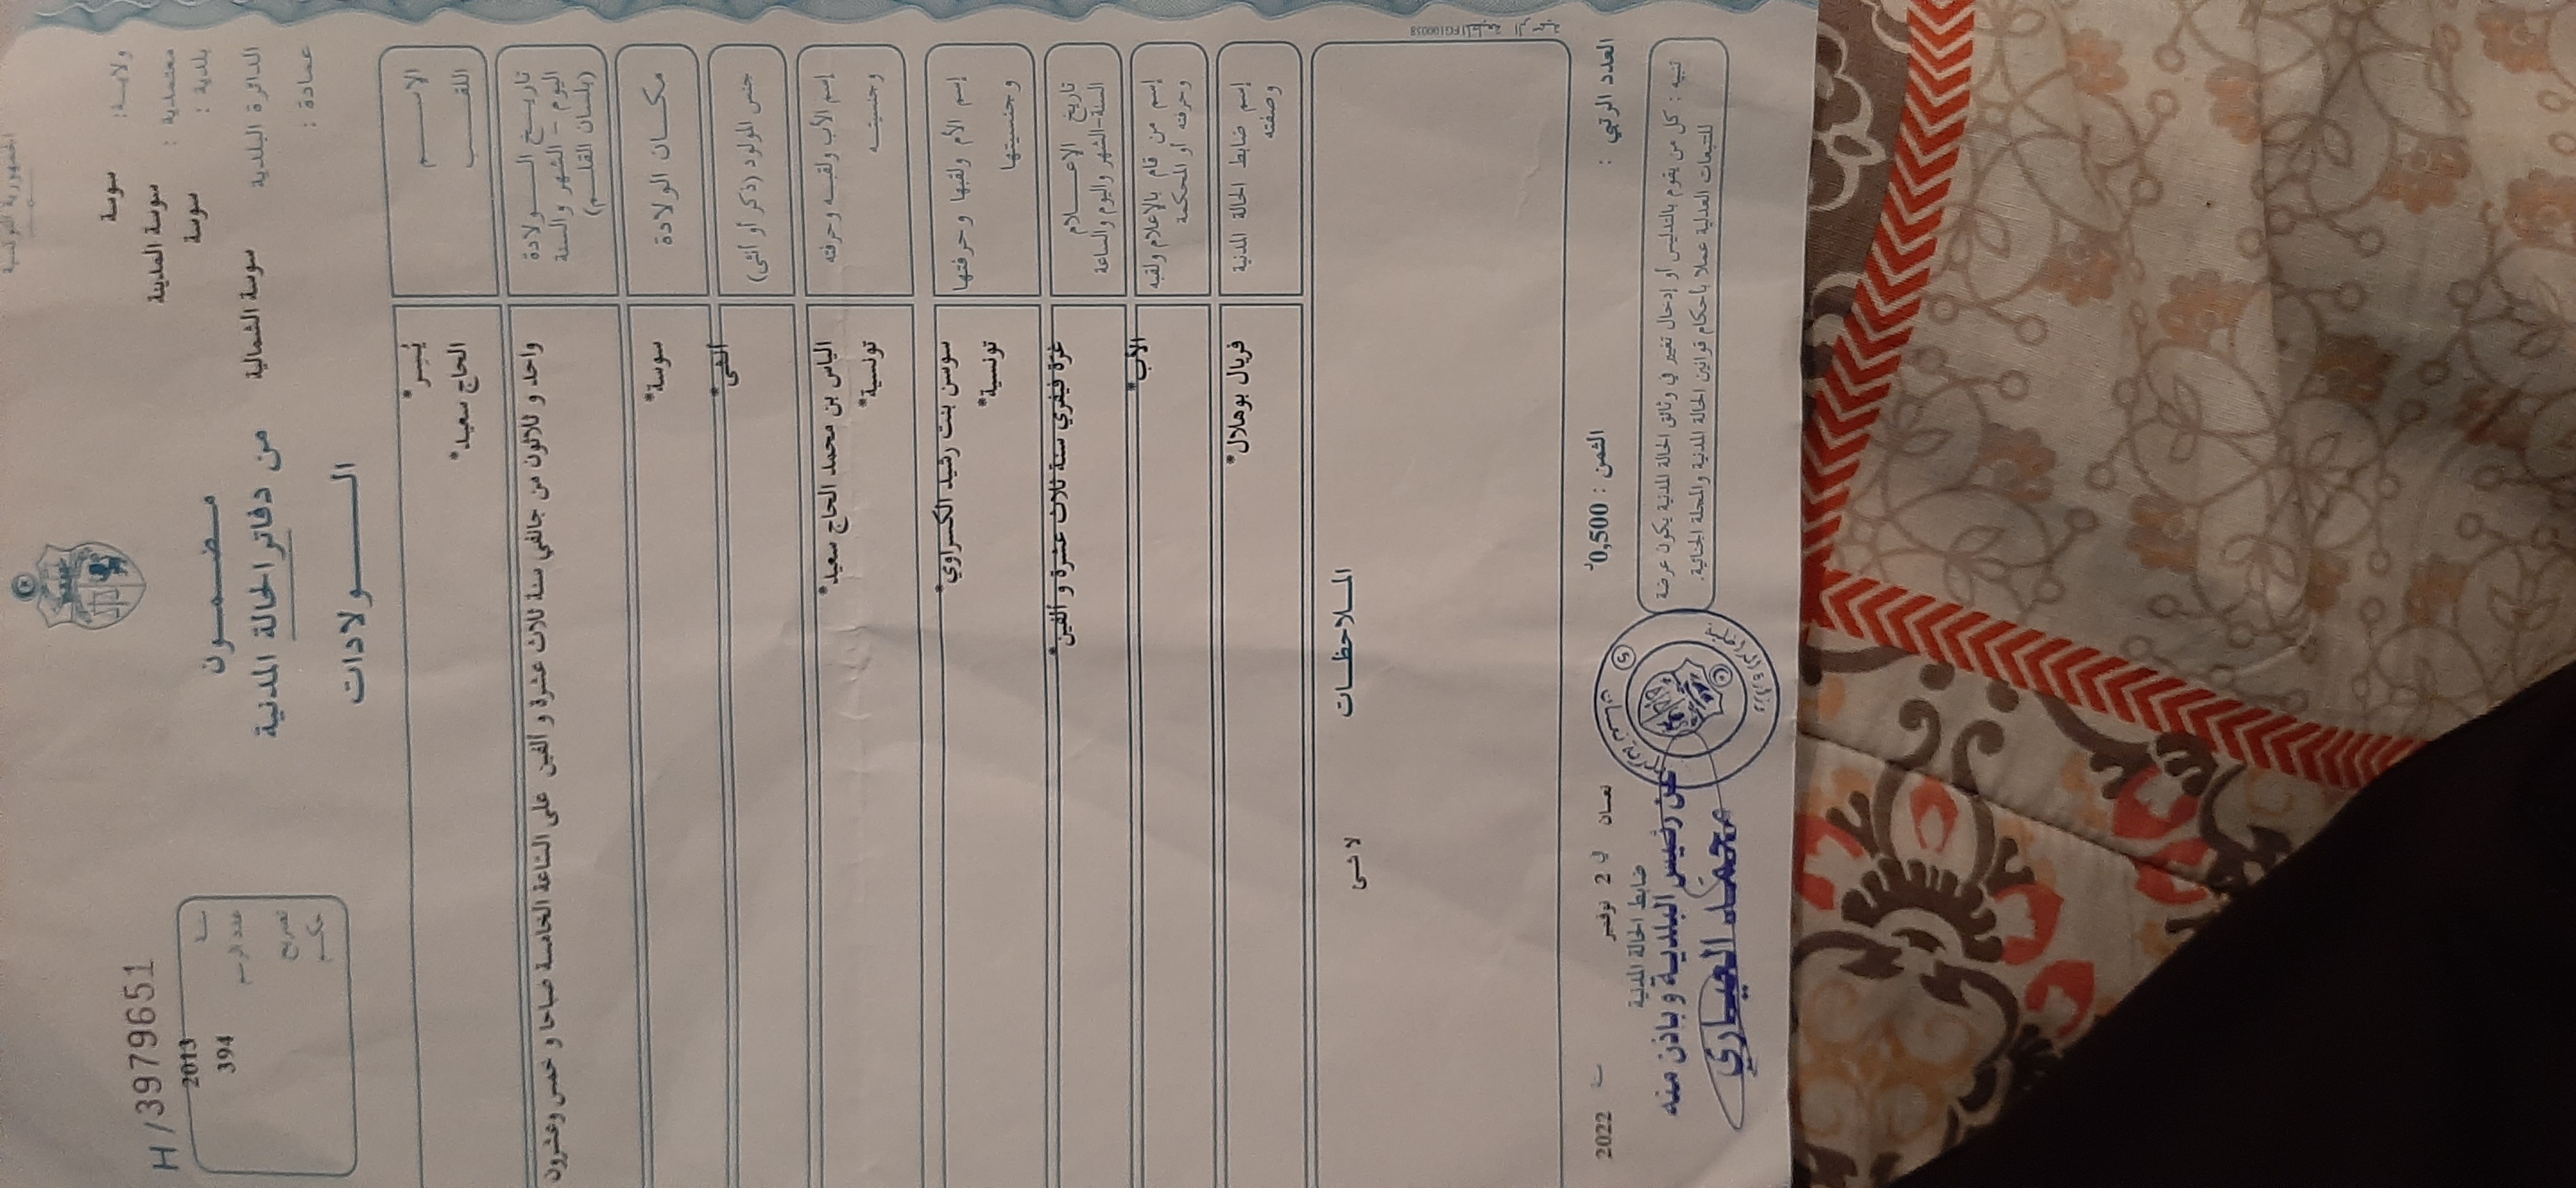 الجمهورية التونسية
ولاية: سوسة
معتمدية : سوسة المدينة
بلدية : سوسة
الدائرة البلدية سوسة الشمالية
عمادة :
H/3979651
سنة 2013
عدد الرسم 394
تصريح
حكم
مضمون
من دفاتر الحالة المدنية
الولادات
الاسم
يُسر*
اللقب
الحاج سعيد*
تاريخ الولادة
اليوم - الشهر والسنة
(بلسان القلم)
واحد و ثلاثون من جانفي سنة ثلاث عشرة و ألفين على الساعة الخامسة صباحا و خمس وعشرون
مكان الولادة
سوسة*
جنس المولود (ذكر أو أنثى)
أنثى*
إسم الأب ولقبه وحرفته
وجنسيته
الياس بن محمد الحاج سعيد*
تونسية*
إسم الأم ولقبها وحرفتها
وجنسيتها
سوسن بنت رشيد الكسراوي*
تونسية*
تاريخ الإعلام
السنة-الشهر واليوم والساعة
غرّة فيفري سنة ثلاث عشرة و ألفين*
إسم من قام بالإعلام ولقبه
وحرفته أو المحكمة
الأب*
إسم ضابط الحالة المدنية
وصفته
فريال بوهلال*
الملاحظات
لا شى
العدد الرتبي :
الثمن : 0,500
نعسان في 2 نوفمبر سنة 2022
ضابط الحالة المدنية
تنبيه : كل من يقوم بالتدليس أو إدخال تغيير في وثائق الحالة المدنية يكون عرضة
للتتبعات العدلية عملا بأحكام قوانين الحالة المدنية والمجلة الجنائية.
عن رئيس البلدية و بإذن منه
محمد العياري
بلدية نعسان
وزارة الداخلية